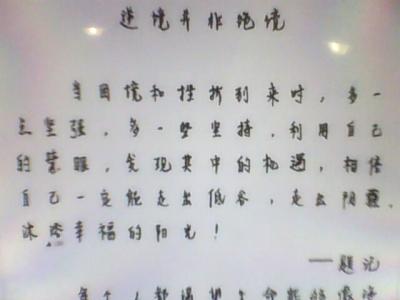 逆境并非绝境
当困境和挫折到来时，多一
点坚强，多一些坚持，利用自己
的慧眼，发现其中的机遇，相信
自己一定能走出低谷，走出阴霾，
沐浴幸福的阳光！
——题记
每个人都遇到